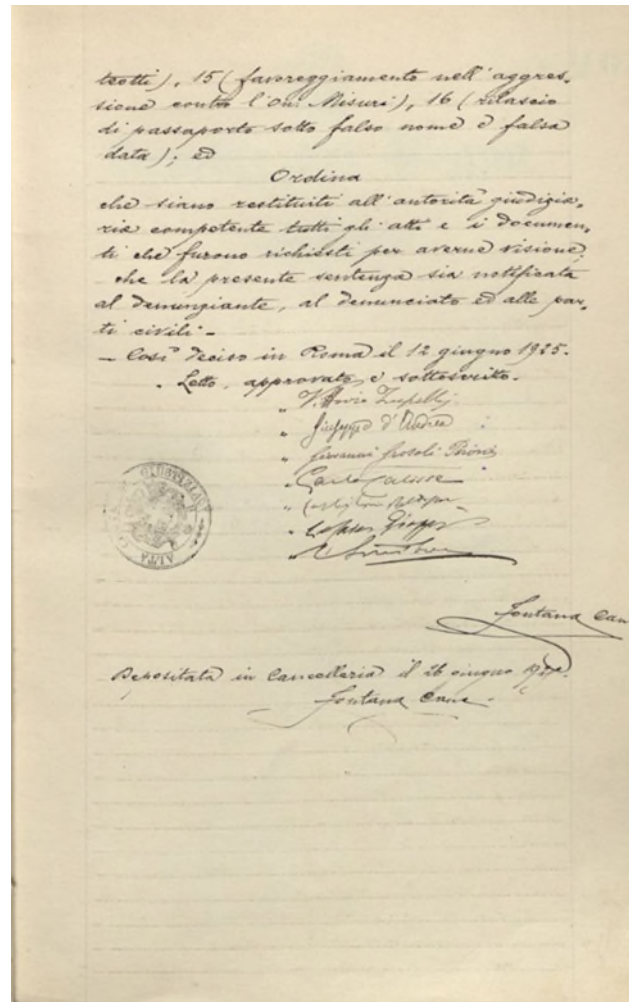 teotti), 15 (favoreggiamento nell'aggres-
sione contro l'On. Misuri), 16 (rilascio
di passaporto sotto falso nome e falsa
data); ed
Ordina
che siano restituiti all'autorità giudizia-
ria competente tutti gli atti e i documen-
ti che furono richiesti per averne visione;
che la presente sentenza sia notificata
al denunziante, al denunciato ed alle par-
ti civili -
- Così deciso in Roma il 12 giugno 1925.
Letto, approvato e sottoscritto.
" Vittorio Zupelli
" Giuseppe d'Andrea
" Giovanni Grosoli Pironi
" Carlo Calisse
"
"
"
ALTA
Fontana Canc
Depositata in Cancelleria il 26 giugno
Fontana Canc